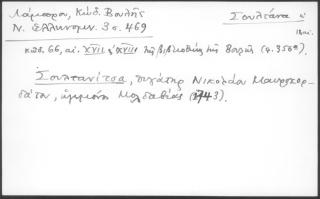 Λάμπρου, Κώδ. Βουλῆς
Σουλτάνα
Ν. Ἑλληνομν. 3 σ. 469
18 αἰ.
κωδ. 66, αἰ. XVII ἢ XVIII τῆς βιβλιοθήκης τῆς Βουλῆς (φ. 350α).
Σουλτανίτσα, θυγάτηρ Νικολάου Μαυροκορ-
δάτου, ἡγεμόνος Μολδαβίας (1743).